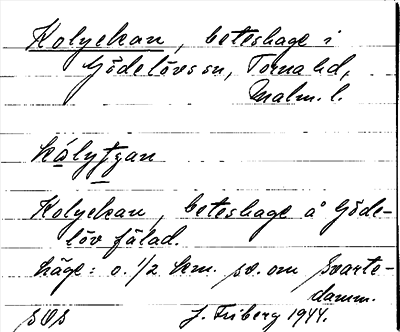 Kolyckan, beteshage i
Gödelövs sn, Torna hd,
Malm. l.
kályťgan
Kolyckan, beteshage å Göde-
löv fälad.
Läge: o. 1/2 km. sv. om Svarte-
damm.
SOS J. Friberg 1944.